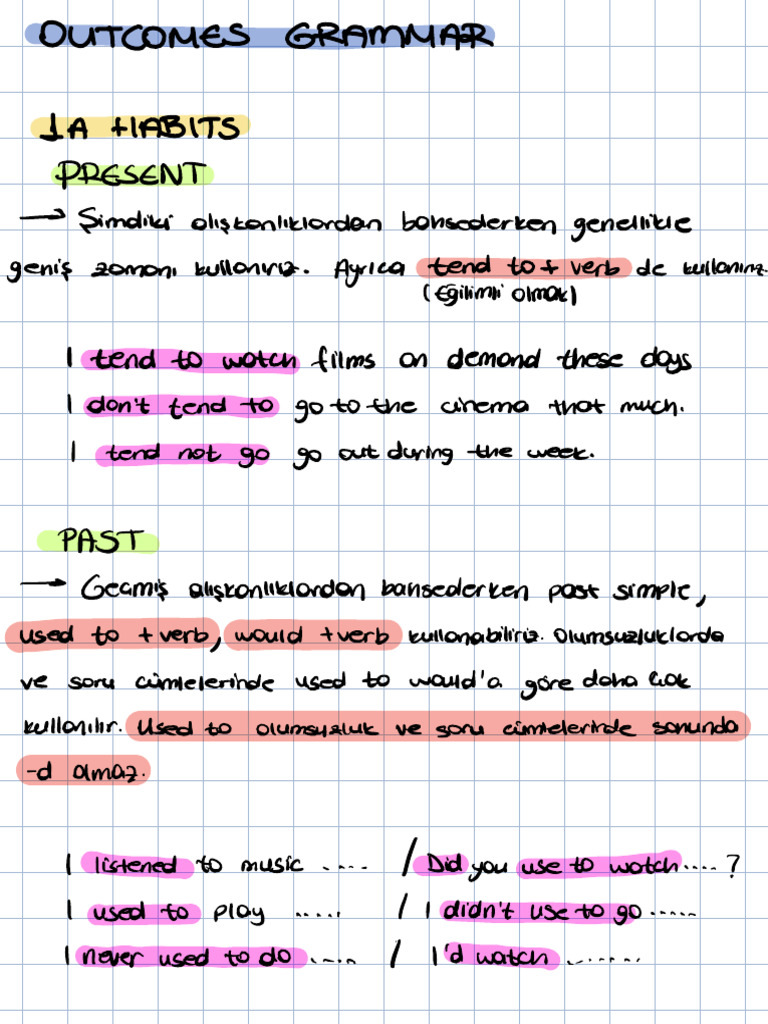 OUTCOMES GRAMMAR
1A HABITS
PRESENT
→ Şimdiki alışkanlıklardan bahsederken genellikle
geniş zamanı kullanırız. Ayrıca tend to + verb de kullanırız.
(Eğilimli olmak)
I tend to watch films on demand these days
I don't tend to go to the cinema that much.
I tend not go go out during the week.
PAST
→ Geçmiş alışkanlıklardan bahsederken past simple,
used to + verb, would + verb kullanabiliriz. Olumsuzluklarda
ve soru cümlelerinde used to would'a göre daha çok
kullanılır. Used to olumsuzluk ve soru cümlelerinde sonunda
-d almaz.
I listened to music ..... / Did you use to watch ..... ?
I used to play ..... / I didn't use to go .....
I never used to do ..... / I'd watch .......